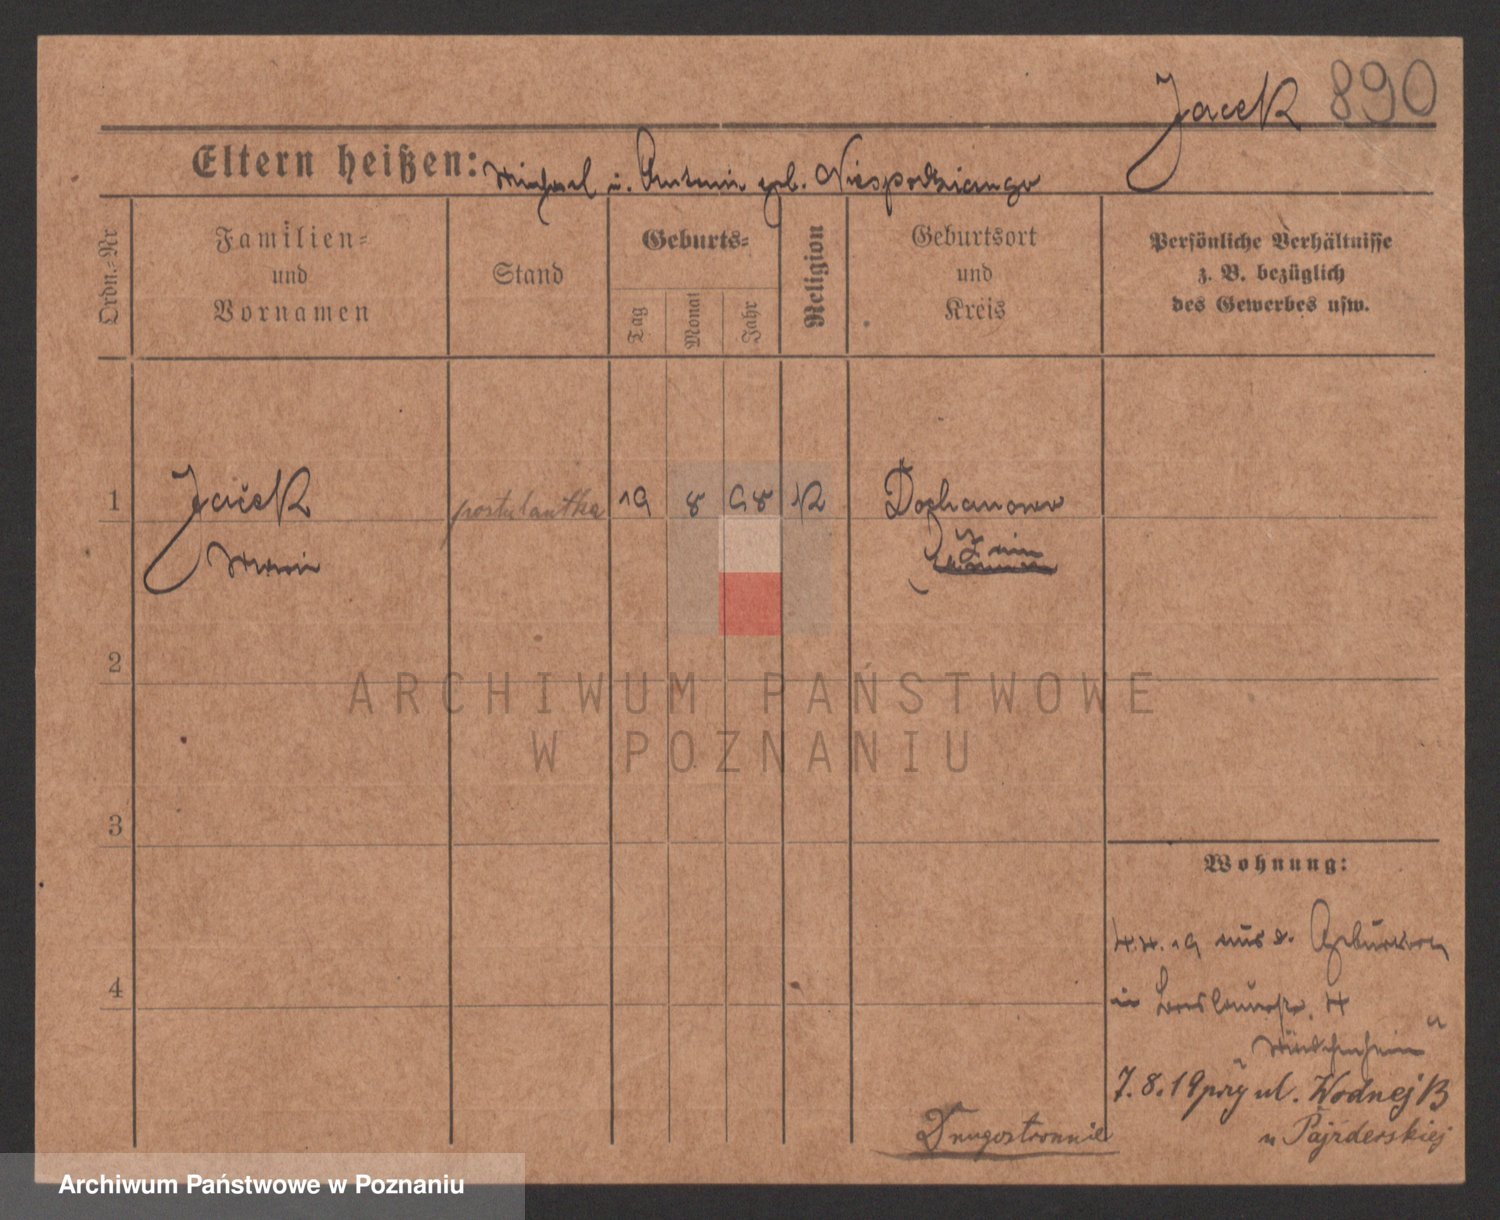 Jacek 890
Eltern heißen: Michael u. Antonie geb. Niespodziana
Ordn.-Nr
Familien-
und
Vornamen
Stand
Geburts-
Tag
Monat
Jahr
Religion
Geburtsort
und
Kreis
Persönliche Verhältnisse
z. B. bezüglich
des Gewerbes usw.
1 Jacek postulantka 19 8 98 K Dochanowo
Marie Znin
2
ARCHIWUM PAŃSTWOWE
W POZNANIU
3
Wohnung:
4
4.4.19 aus d. Geburtsort
in 4
"Mädchenheim"
7.8.19 przy ul. Wodnej 13
u Pajzderskiej
Drugostronnie
Archiwum Państwowe w Poznaniu